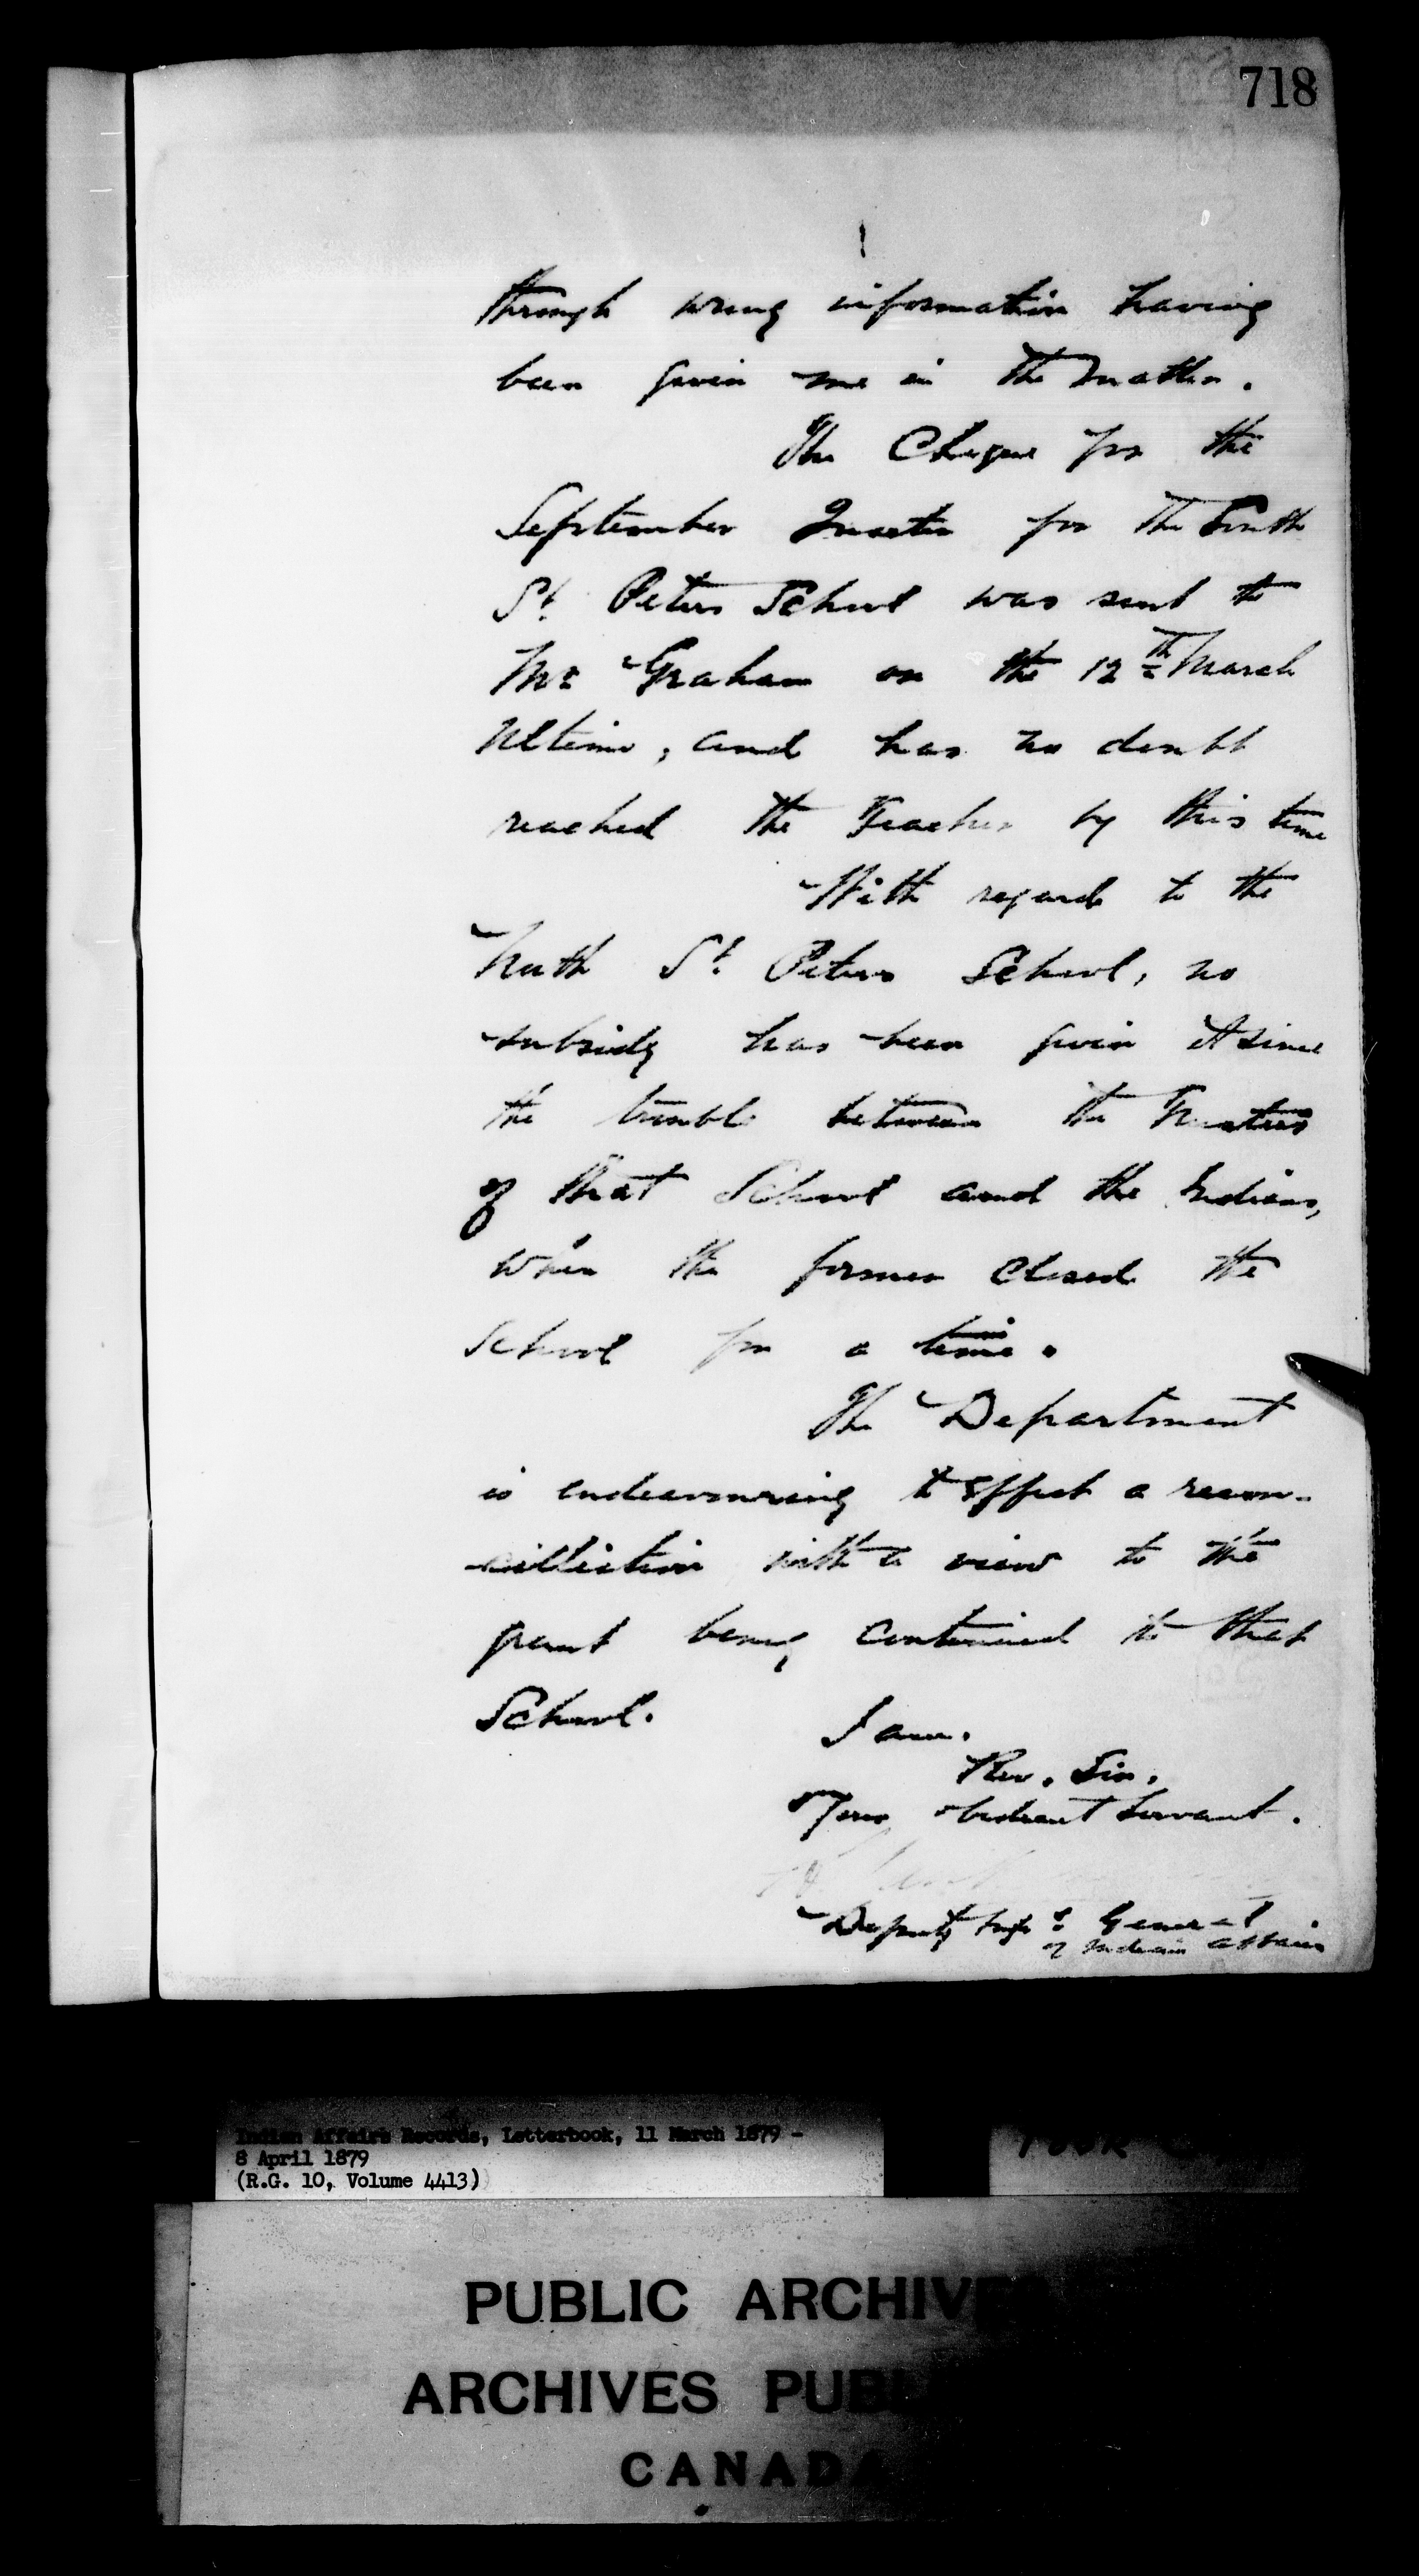 718
through wrong information having
been given me in the matter.
The Cheque for the
September Quarter for the South
St. Peters School was sent to
Mr Graham on the 12th March
ultimo, and has no doubt
reached the Teacher by this time
With regard to the
North St. Peters School, no
subsidy has been given it since
the trouble between the Trustees
of that School and the Indians,
when the former closed the
School for a time.
The Department
is endeavouring to effect a recon-
cilliation with a view to the
grant being continued to that
School.
I am,
Rev. Sir,
Your obedient Servant.
Deputy Supt General
of Indian Affairs
Indian Affairs Records, Letterbook, 11 March 1879 -
8 April 1879
(R.G. 10, Volume 4413)
PUBLIC ARCHIVES
ARCHIVES PUBL
CANADA